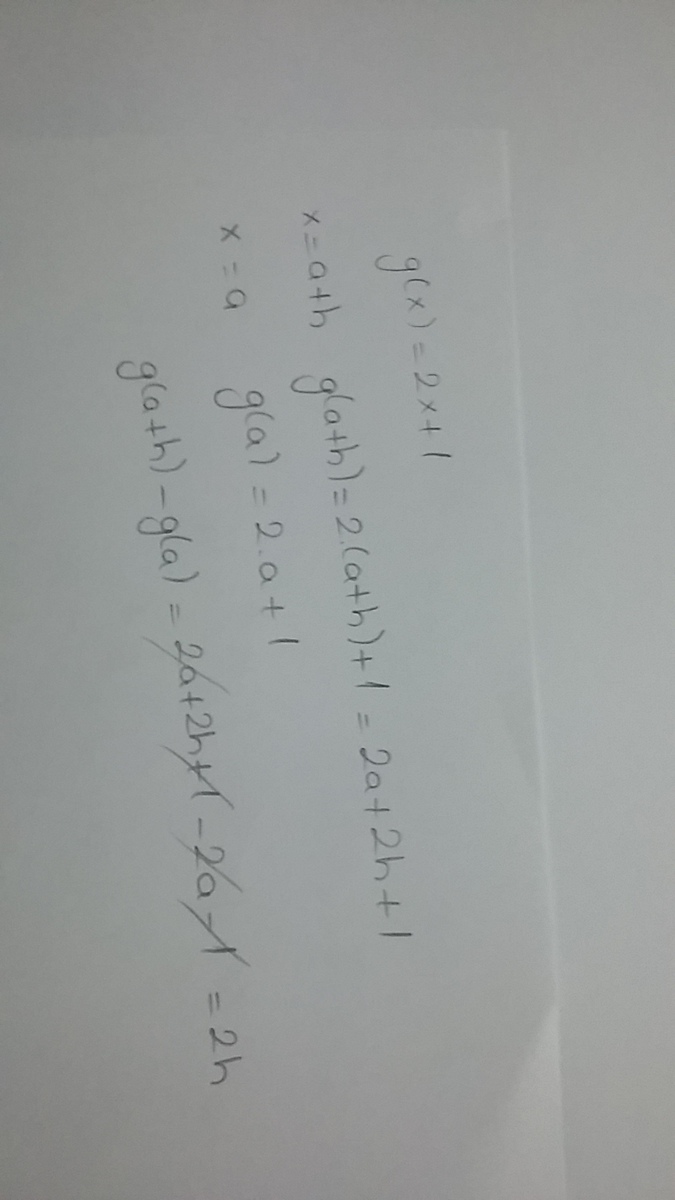 g(x) = 2x+1
x=a+h g(a+h)=2.(a+h)+1 = 2a+2h+1
x=a g(a) = 2.a+1
g(a+h)-g(a) = 2a+2h+1-2a-1 = 2h